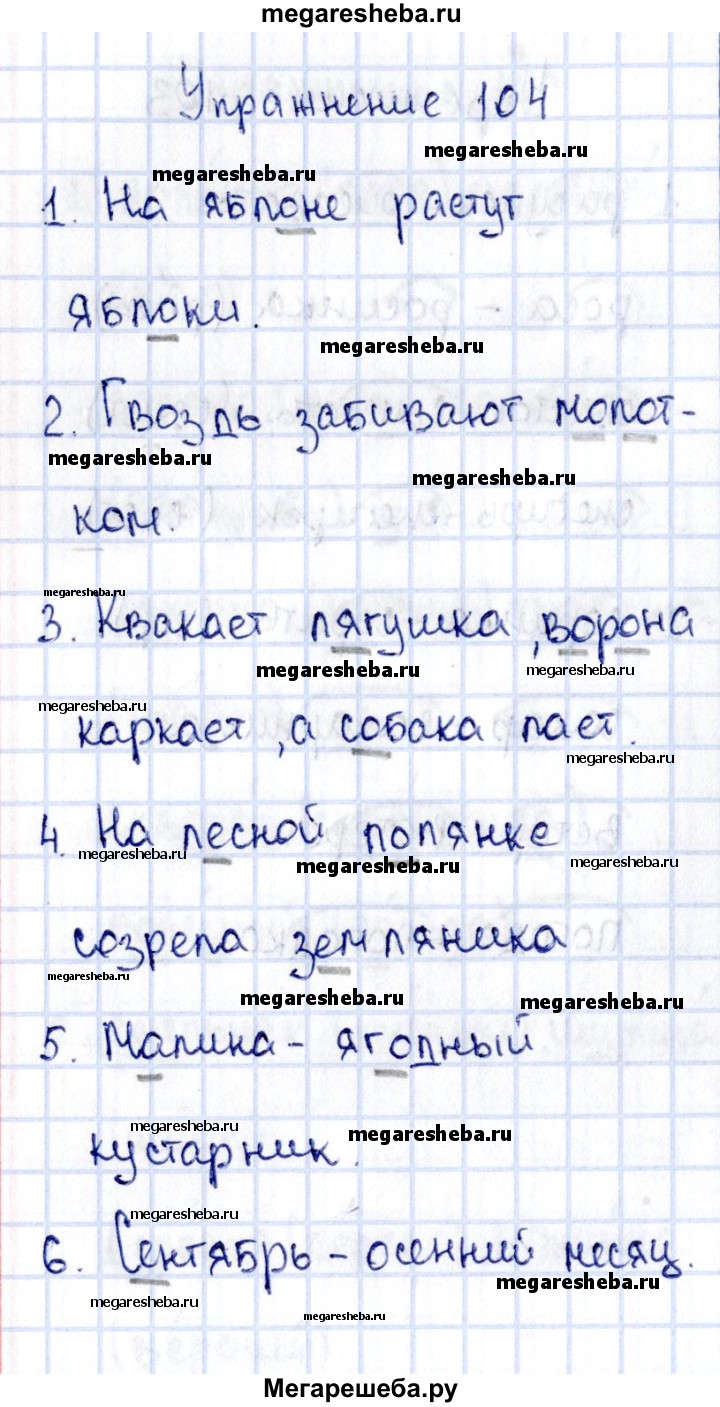 megaresheba.ru
Упражнение 104
megaresheba.ru
megaresheba.ru
1. На яблоне растут
яблоки.
megaresheba.ru
megaresheba.ru
2. Гвоздь забивают молот-
megaresheba.ru
megaresheba.ru
ком.
megaresheba.ru
3. Квакает лягушка, ворона
megaresheba.ru
megaresheba.ru
megaresheba.ru
каркает, а собака лает.
megaresheba.ru
4. На лесной полянке
megaresheba.ru
megaresheba.ru
megaresheba.ru
созрела земляника
megaresheba.ru
megaresheba.ru
megaresheba.ru
5. Малина - ягодный
megaresheba.ru
megaresheba.ru
кустарник.
megaresheba.ru
6. Сентябрь - осенний месяц.
megaresheba.ru
megaresheba.ru
megaresheba.ru
Мегарешеба.ру